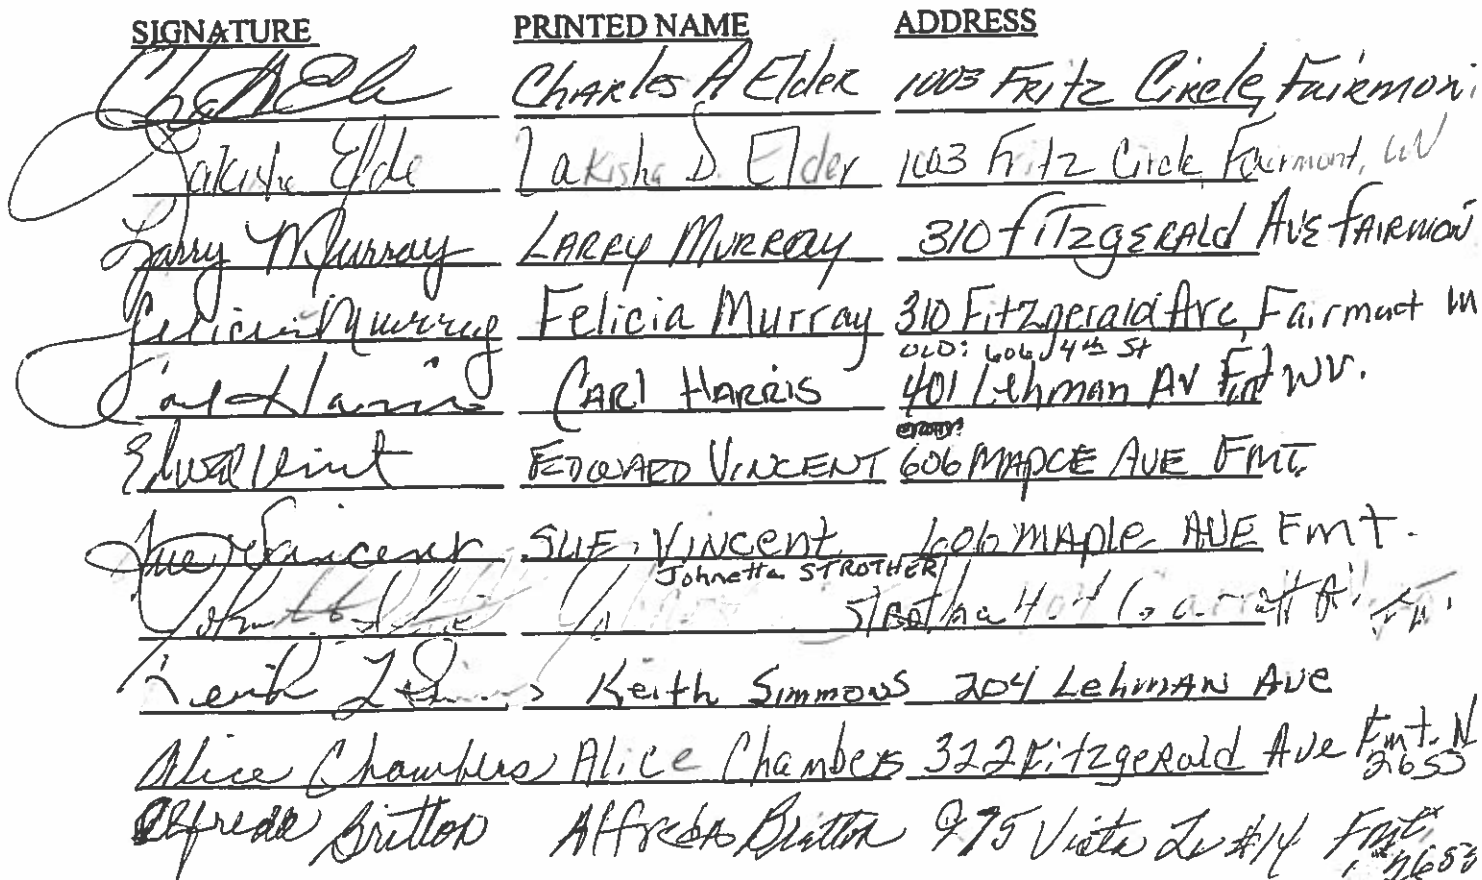 SIGNATURE PRINTED NAME ADDRESS
Charles A Elder 1003 FRitz Circle, Fairmon
Lakisha Elde Lakisha D. Elder 1003 Fritz Circle Fairmont, WV
Larry Murray LARRY MURRAY 310 FiTzgERAld AVE FAIRMON
Felicia Murray Felicia Murray 310 Fitzgerald Ave, Fairmont
OLD: 606 4th St
Carl Harris CARl HARRIS 401 Lehman AV Fmt WV.
Edward Vincent EDWARD VINCENT 606 MAPLE AVE FMT.
Sue Vincent SUE VINCENT 606 MAPle AVE Fmt.
Johnetta STROTHER
Strother
Keith Keith Simmons 204 LehmAN Ave
Alice Chambers Alice Chambers 322 Fitzgerald Ave Fmt.
2655
Alfreda Britton Alfreda Britton 975 Vista Ln #14 Fmt